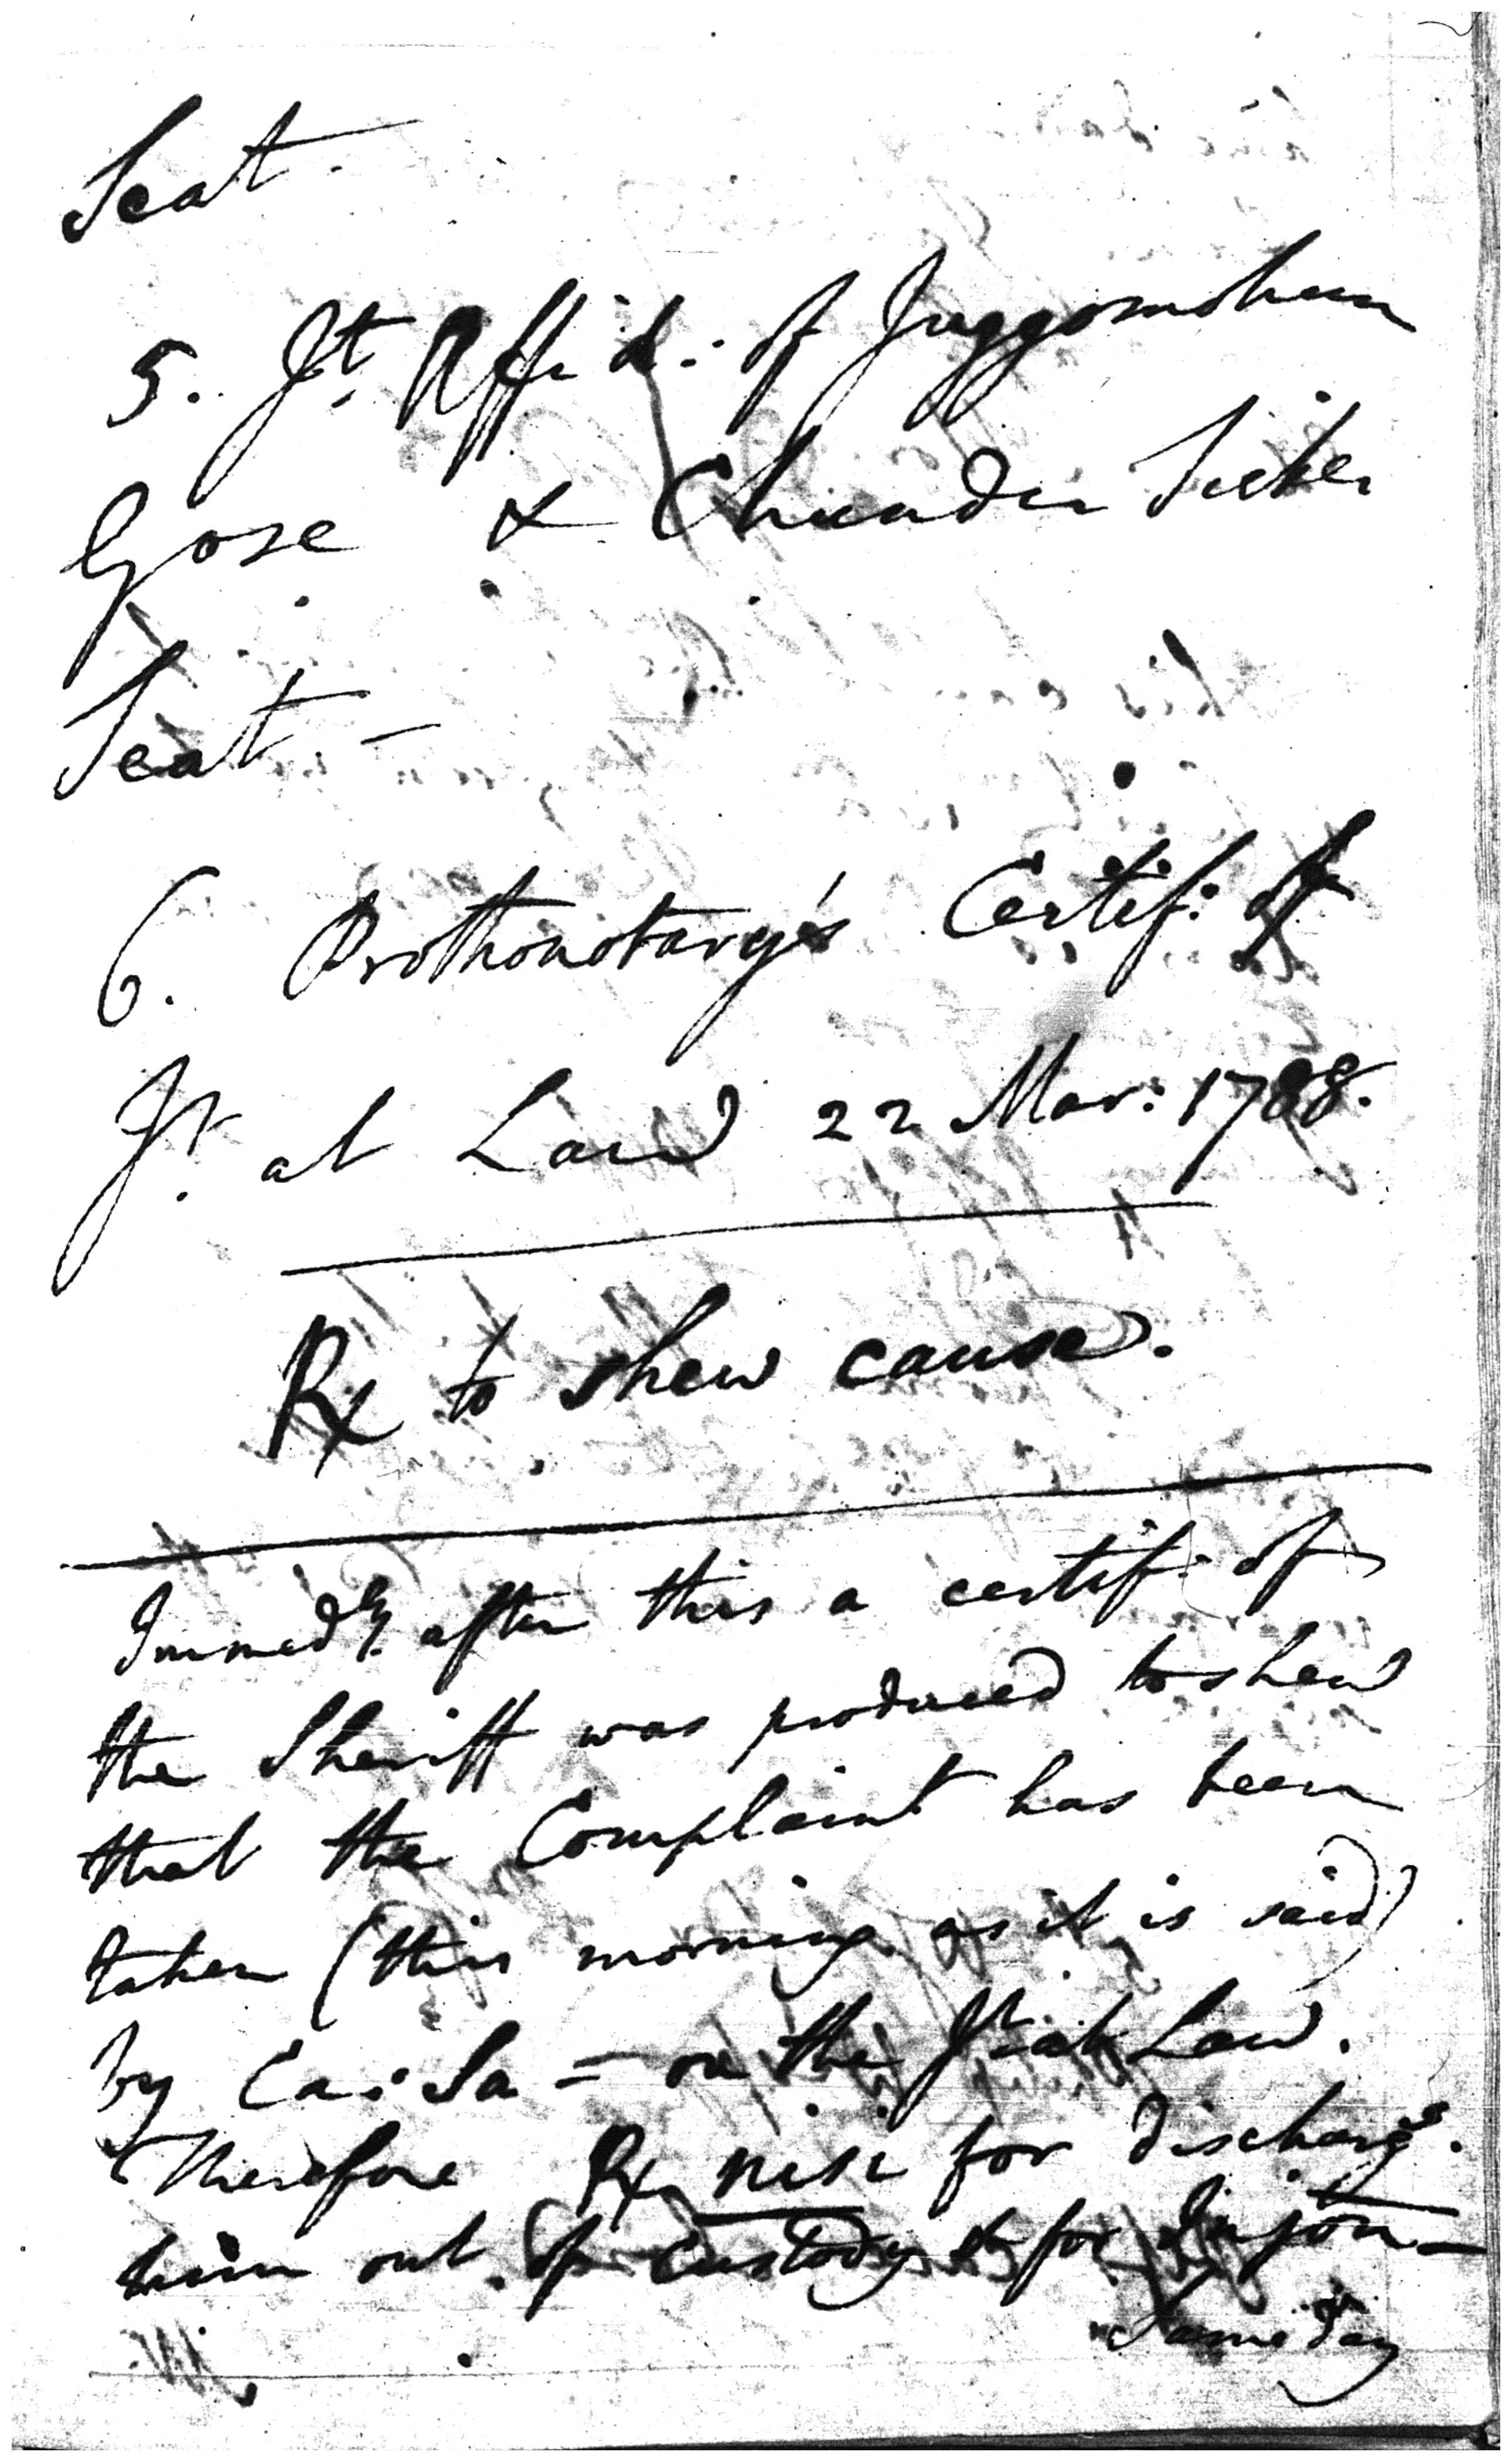 Seat.
5. Jt. Affid: of Juggomohun
Gose & Chunder Seeker
Seat -
6. Prothonotary's Certif: of
Jt. at Law 22 Mar: 1788.
Rx to shew cause.
Immedly. after this a certif: of
the Sheriff was produced to shew
that the Complaint has been
taken (this morning as it is said)
by Ca: Sa = on the Jt. at Law.
Therefore Rx nisi for discharge.
him out of custody & for Injon -
Same day